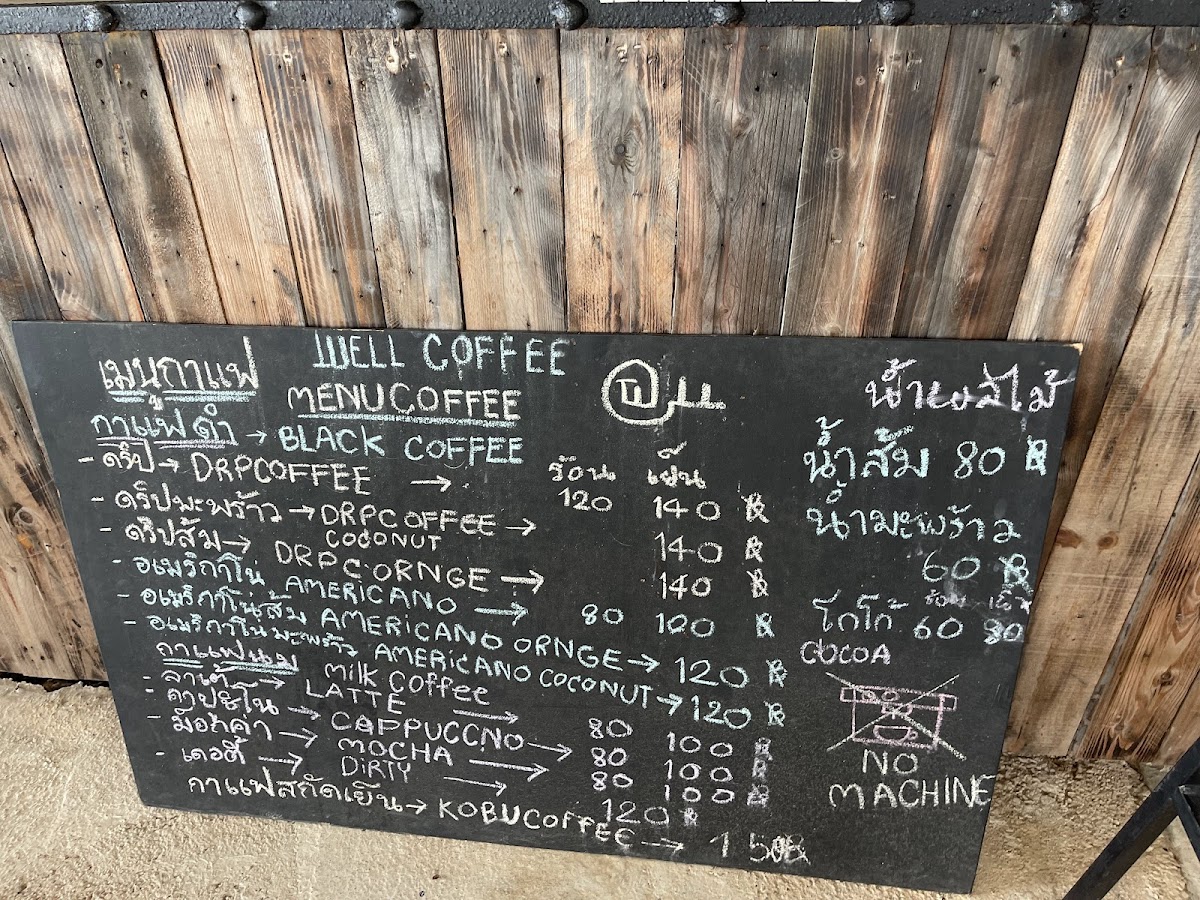 WELL COFFEE
เมนูกาแฟ MENUCOFFEE
กาแฟดำ → BLACK COFFEE
ร้อน เย็น
- ดริป → DRPCOFFEE → 120 140 ฿
- ดริปมะพร้าว → DRPCOFFEE COCONUT → 140 ฿
- ดริปส้ม → DRPC.ORNGE → 140 ฿
- อเมริกาโน่ AMERICANO → 80 100 ฿
- อเมริกาโน่ส้ม AMERICANO ORNGE → 120 ฿
- อเมริกาโน่มะพร้าว AMERICANO COCONUT → 120 ฿
กาแฟนม Milk Coffee
- ลาเต้ → LATTE → 80 100 ฿
- คาปูชิโน → CAPPUCCNO → 80 100 ฿
- ม๊อกค่า → MOCHA → 80 100 ฿
- เดอตี้ → DiRTY → 120 ฿
กาแฟสกัดเย็น → KOBUCOFFEE → 150฿
น้ำผลไม้
น้ำส้ม 80 ฿
น้ำมะพร้าว
60 ฿
ร้อน เย็น
โกโก้ 60 80
COCOA
NO
MACHINE